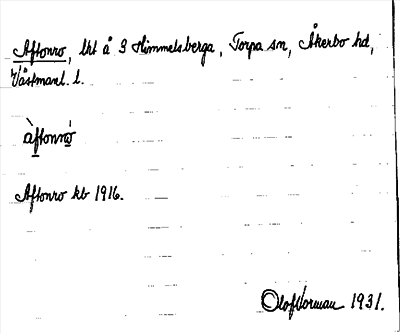 Aftonro, lht å 3 Himmelsberga, Torpa sn, Åkerbo hd,
Västmanl. l.
àftonnò
Aftonro kb 1916.
Olof Norman 1931.